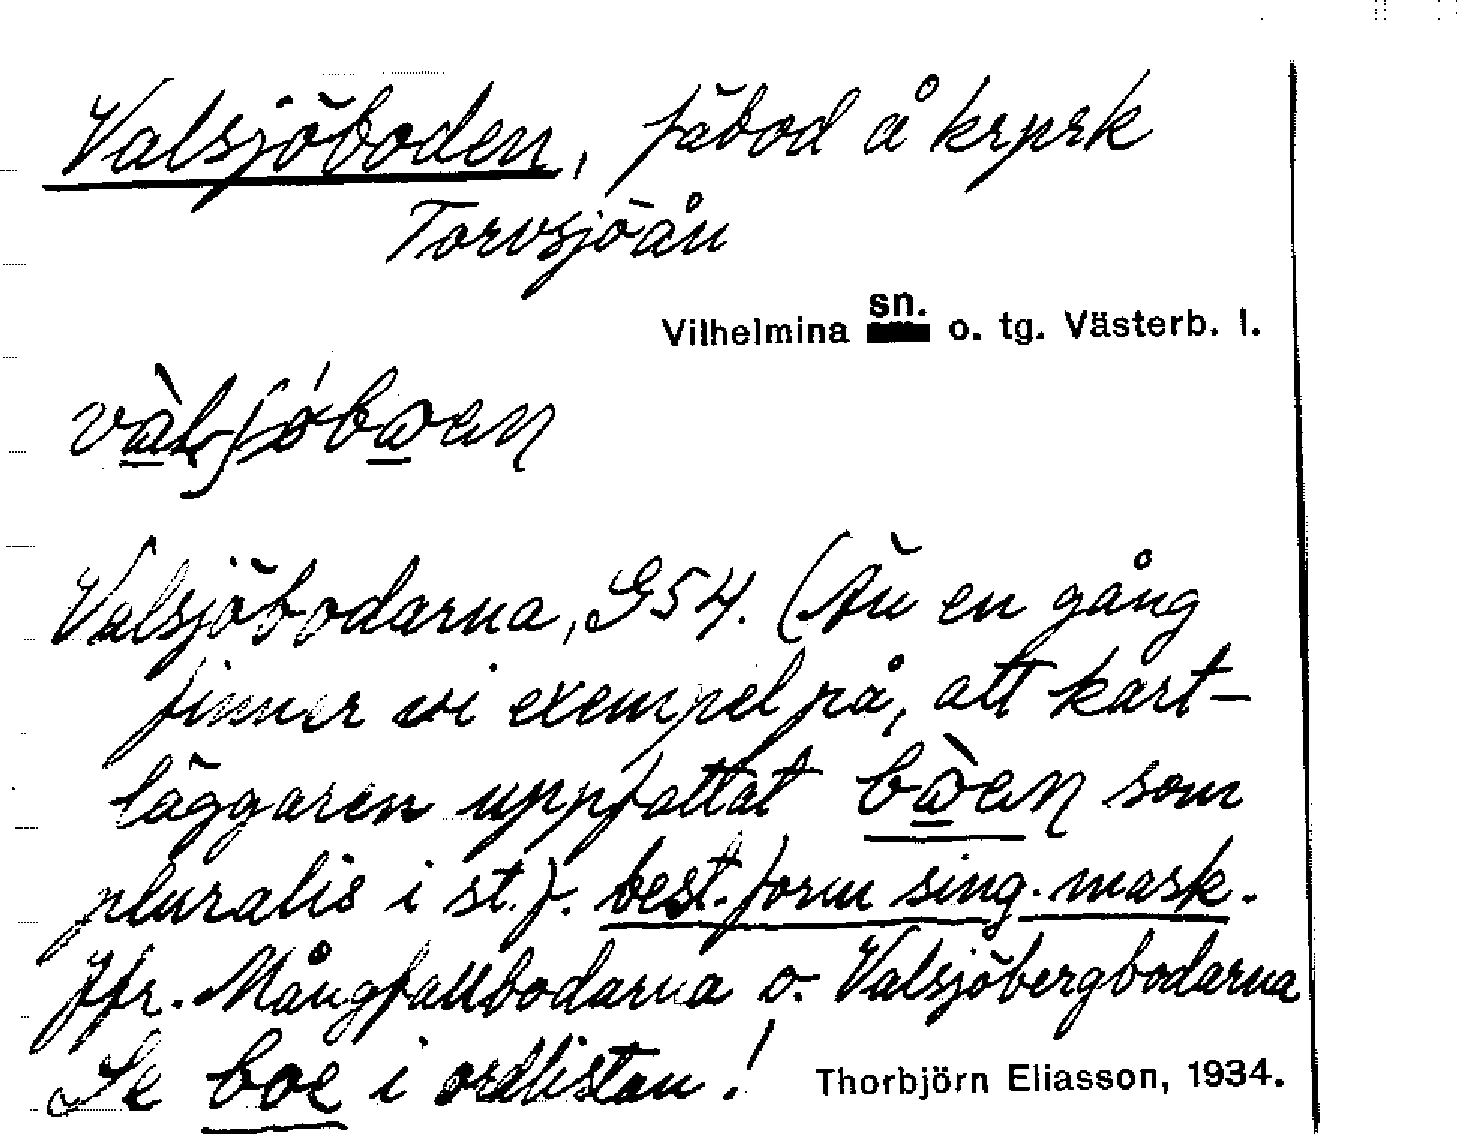 Valsjöboden, fäbod å krprk
Torvsjöån
Vilhelmina sn. o. tg. Västerb. l.
Valsjöbodarna, G54. (Än en gång
finner vi exempel på, att kart-
läggaren uppfattat bὼen som
pluralis i st. f. best. form sing. mask.
Jfr. Mångfallbodarna o. Valsjöbergbodarna
Se boe i ordlistan!
Thorbjörn Eliasson, 1934.